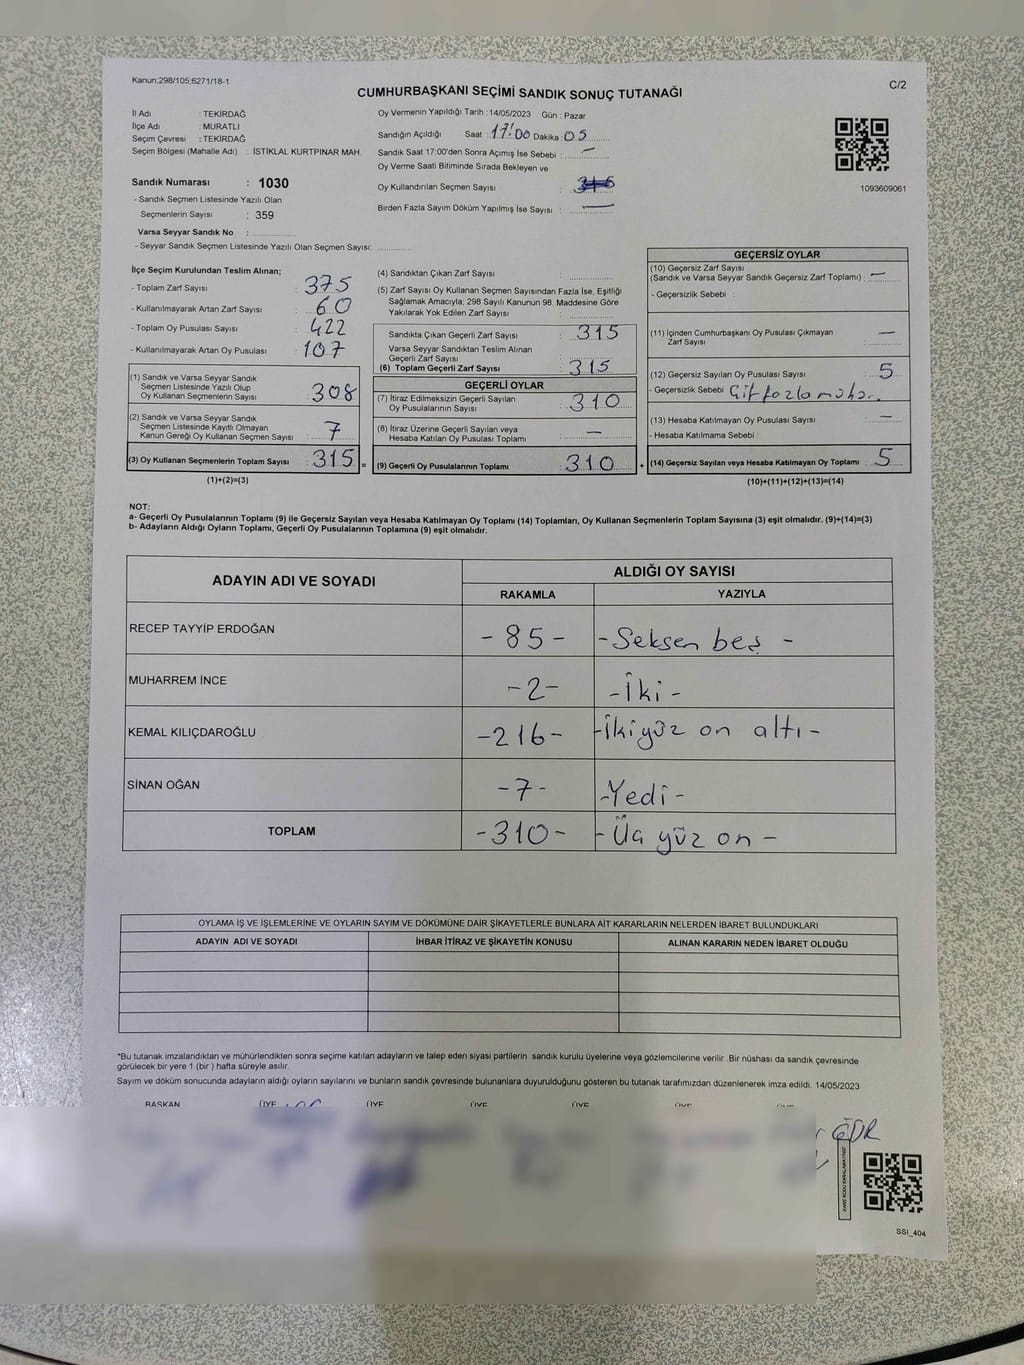 Kanun;298/105;6271/18-1
C/2
CUMHURBAŞKANI SEÇİMİ SANDIK SONUÇ TUTANAĞI
İl Adı : TEKİRDAĞ
İlçe Adı : MURATLI
Seçim Çevresi : TEKİRDAĞ
Seçim Bölgesi (Mahalle Adı) : İSTİKLAL KURTPINAR MAH.
Sandık Numarası : 1030
- Sandık Seçmen Listesinde Yazılı Olan
Seçmenlerin Sayısı : 359
Varsa Seyyar Sandık No :
- Seyyar Sandık Seçmen Listesinde Yazılı Olan Seçmen Sayısı:
Oy Vermenin Yapıldığı Tarih : 14/05/2023 Gün : Pazar
Sandığın Açıldığı Saat : 17:00 Dakika : 05
Sandık Saat 17:00'den Sonra Açımış İse Sebebi : —
Oy Verme Saati Bitiminde Sırada Bekleyen ve
Oy Kullandırılan Seçmen Sayısı
Birden Fazla Sayım Döküm Yapılmış İse Sayısı : —
1093609061
İlçe Seçim Kurulundan Teslim Alınan;
- Toplam Zarf Sayısı : 375
- Kullanılmayarak Artan Zarf Sayısı : 60
- Toplam Oy Pusulası Sayısı : 422
- Kullanılmayarak Artan Oy Pusulası : 107
(1) Sandık ve Varsa Seyyar Sandık
Seçmen Listesinde Yazılı Olup
Oy Kullanan Seçmenlerin Sayısı : 308
(2) Sandık ve Varsa Seyyar Sandık
Seçmen Listesinde Kayıtlı Olmayan
Kanun Gereği Oy Kullanan Seçmen Sayısı : 7
(3) Oy Kullanan Seçmenlerin Toplam Sayısı : 315 =
(1)+(2)=(3)
(4) Sandıktan Çıkan Zarf Sayısı :
(5) Zarf Sayısı Oy Kullanan Seçmen Sayısından Fazla İse, Eşitliği
Sağlamak Amacıyla; 298 Sayılı Kanunun 98. Maddesine Göre
Yakılarak Yok Edilen Zarf Sayısı :
Sandıkta Çıkan Geçerli Zarf Sayısı : 315
Varsa Seyyar Sandıktan Teslim Alınan
Geçerli Zarf Sayısı :
(6) Toplam Geçerli Zarf Sayısı : 315
GEÇERLİ OYLAR
(7) İtiraz Edilmeksizin Geçerli Sayılan
Oy Pusulalarının Sayısı : 310
(8) İtiraz Üzerine Geçerli Sayılan veya
Hesaba Katılan Oy Pusulası Toplamı : —
(9) Geçerli Oy Pusulalarının Toplamı : 310 +
GEÇERSİZ OYLAR
(10) Geçersiz Zarf Sayısı
(Sandık ve Varsa Seyyar Sandık Geçersiz Zarf Toplamı) : —
- Geçersizlik Sebebi :
(11) İçinden Cumhurbaşkanı Oy Pusulası Çıkmayan
Zarf Sayısı : —
(12) Geçersiz Sayılan Oy Pusulası Sayısı : 5
- Geçersizlik Sebebi
(13) Hesaba Katılmayan Oy Pusulası Sayısı : —
- Hesaba Katılmama Sebebi :
(14) Geçersiz Sayılan veya Hesaba Katılmayan Oy Toplamı : 5
(10)+(11)+(12)+(13)=(14)
NOT:
a- Geçerli Oy Pusulalarının Toplamı (9) ile Geçersiz Sayılan veya Hesaba Katılmayan Oy Toplamı (14) Toplamları, Oy Kullanan Seçmenlerin Toplam Sayısına (3) eşit olmalıdır. (9)+(14)=(3)
b- Adayların Aldığı Oyların Toplamı, Geçerli Oy Pusulalarının Toplamına (9) eşit olmalıdır.
ADAYIN ADI VE SOYADI
ALDIĞI OY SAYISI
RAKAMLA YAZIYLA
RECEP TAYYİP ERDOĞAN -85- -Seksen beş -
MUHARREM İNCE -2- -İki-
KEMAL KILIÇDAROĞLU -216- -İkiyüz on altı-
SİNAN OĞAN -7- -Yedi-
TOPLAM -310- -Üç yüz on-
OYLAMA İŞ VE İŞLEMLERİNE VE OYLARIN SAYIM VE DÖKÜMÜNE DAİR ŞİKAYETLERLE BUNLARA AİT KARARLARIN NELERDEN İBARET BULUNDUKLARI
ADAYIN ADI VE SOYADI İHBAR İTİRAZ VE ŞİKAYETİN KONUSU ALINAN KARARIN NEDEN İBARET OLDUĞU
*Bu tutanak imzalandıktan ve mühürlendikten sonra seçime katılan adayların ve talep eden siyasi partilerin sandık kurulu üyelerine veya gözlemcilerine verilir .Bir nüshası da sandık çevresinde
görülecek bir yere 1 (bir ) hafta süreyle asılır.
Sayım ve döküm sonucunda adayların aldığı oyların sayılarını ve bunların sandık çevresinde bulunanlara duyurulduğunu gösteren bu tutanak tarafımızdan düzenlenerek imza edildi. 14/05/2023
BAŞKAN ÜYE ÜYE ÜYE ÜYE ÜYE ÜYE
SSI_404